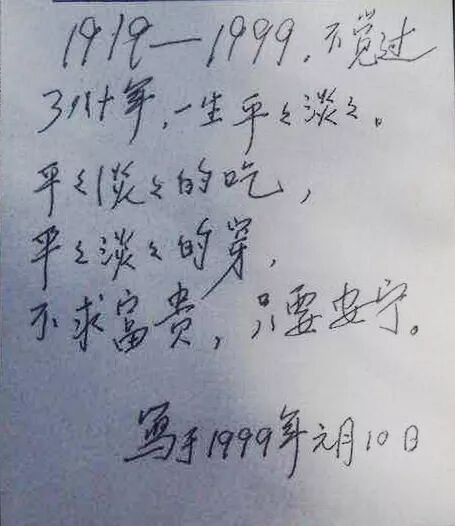 1919—1999，不觉过
了八十年，一生平々淡々。
平々淡々的吃，
平々淡々的穿，
不求富贵，只要安宁。
写于1999年元月10日